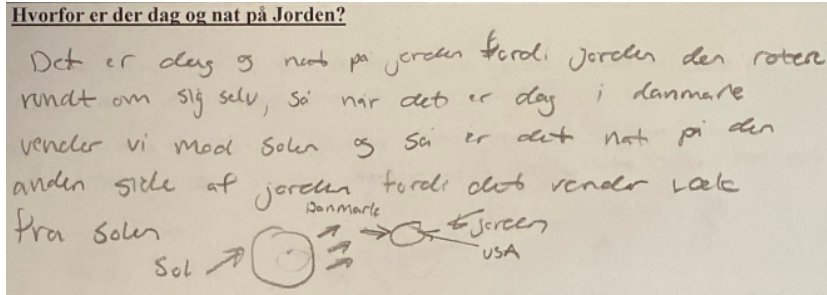 Hvorfor er der dag og nat på Jorden?
Det er dag og nat på jorden fordi jorden den rotere
rundt om sig selv, så når det er dag i danmark
vender vi mod solen og så er det nat på den
anden side af jorden fordi det vender væk
fra solen
Danmark
jorden
Sol
USA